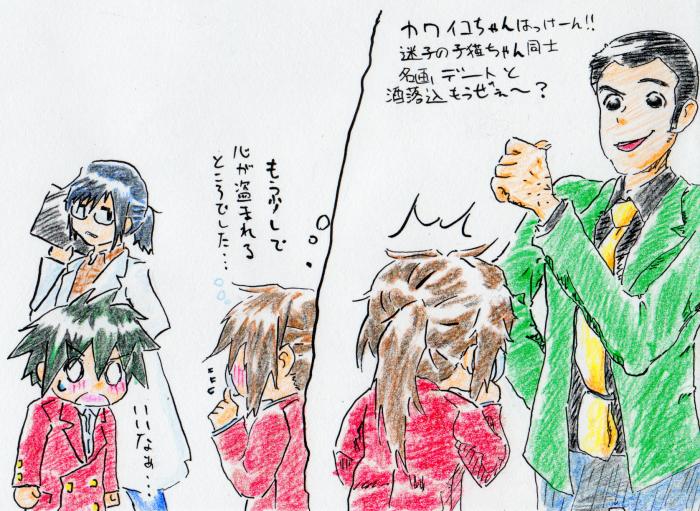 カワイコちゃんはっけーん!!
迷子の子猫ちゃん同士
名画デートと
洒落込もうぜぇ〜?
もう少しで
心が盗まれる
ところでした…
いいなぁ…